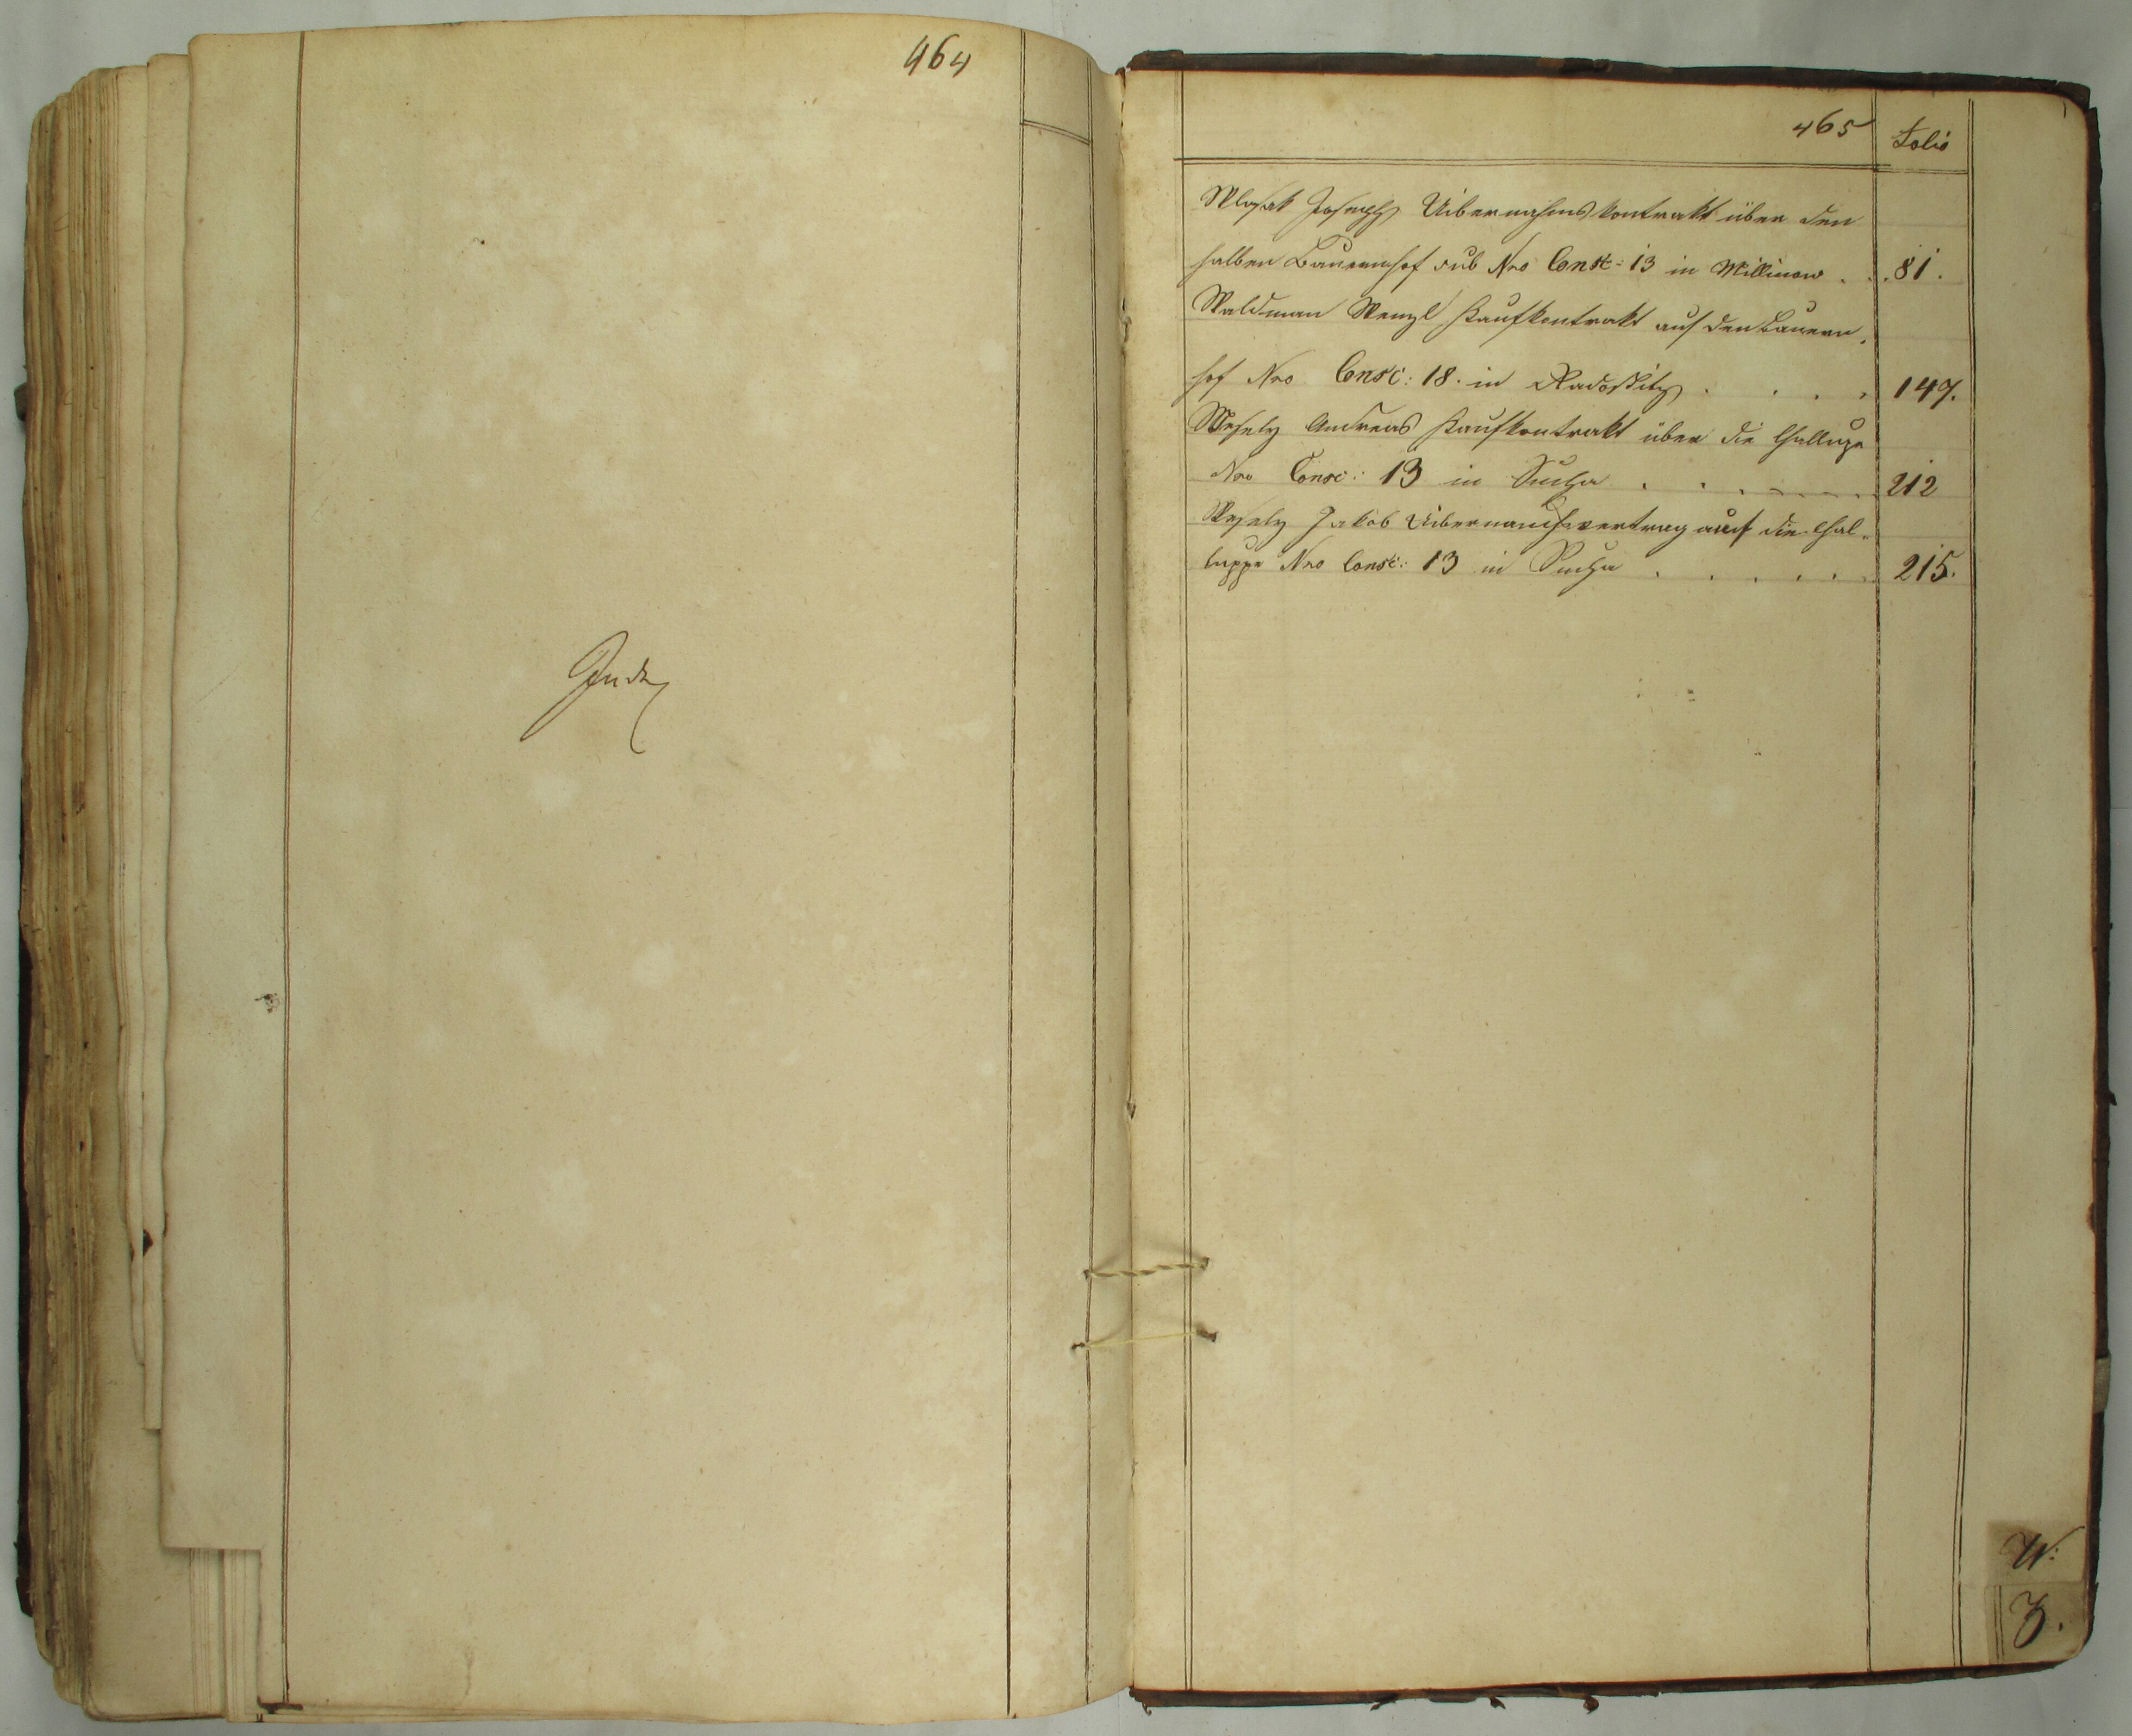 464
Indx
465
Folio
Wlasak Joseph Uibernahmskontrakt über den
halben Bauernhof sub Nro Consc: 13 in Millinow . . 81.
Waldman Wenzl Kaufkontrakt auf den Bauern,
hof Nro Consc: 18. in Radostitz . . . . 147.
Wesely Andreas Kaufkontrakt über die Challupe
Nro Consc: 13 in Sucha . . . . . . 212
Wesely Jakob Uibernamhsvertrag auf die Chal,
luppe Nro Consc: 13 in Sucha . . . . . . 215.
W:
Z.